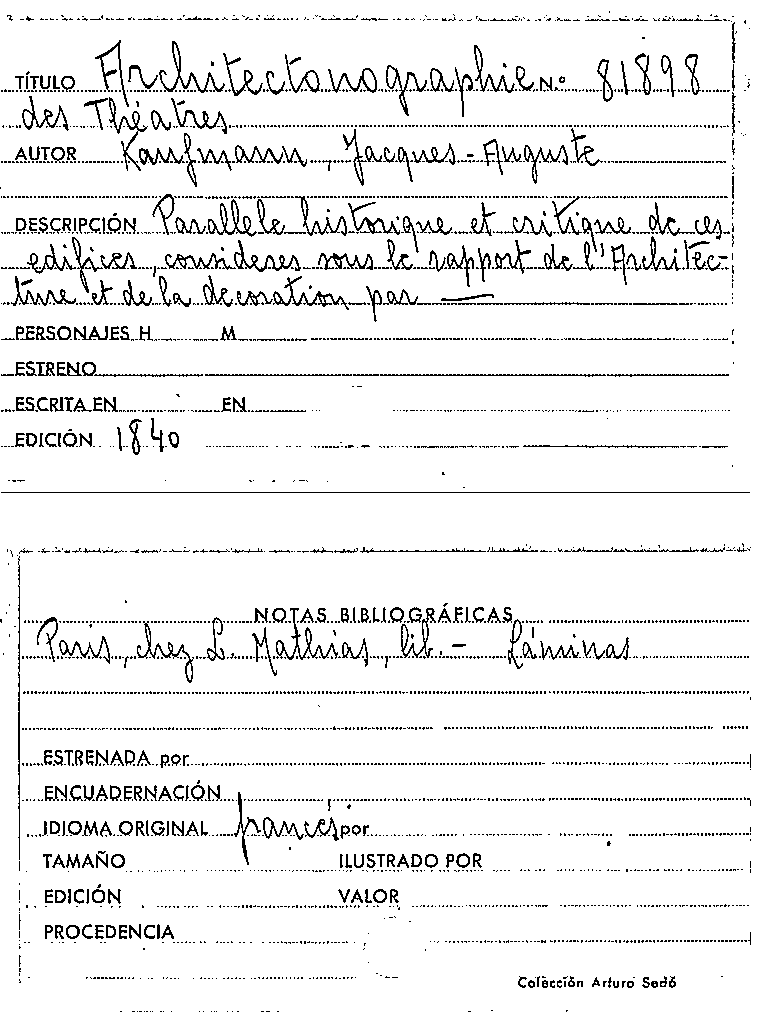 TÍTULO Architectonographie N.º 81898
des Théatres
AUTOR Kaufmann, Jacques-Auguste
DESCRIPCIÓN Parallele historique et critique de ces
edifices, consideres sous le rapport de l'Architec-
ture et de la decoration par —
PERSONAJES H M
ESTRENO
ESCRITA EN EN
EDICIÓN 1840
NOTAS BIBLIOGRÁFICAS
Paris, chez L. Mathias, lib. - Láminas
ESTRENADA por
ENCUADERNACIÓN
IDIOMA ORIGINAL francés por
TAMAÑO ILUSTRADO POR
EDICIÓN VALOR
PROCEDENCIA
Colección Arturo Sedó